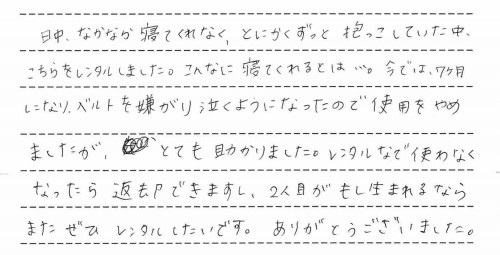 日中、なかなか寝てくれなく、とにかくずっと抱っこしていた中、
こちらをレンタルしました。こんなに寝てくれるとは…。今では、7ヶ月
になり、ベルトを嫌がり泣くようになったので使用をやめ
ましたが、とても助かりました。レンタルなで使わなく
なったら返却できますし、2人目がもし生まれるなら
またぜひレンタルしたいです。ありがとうございました。